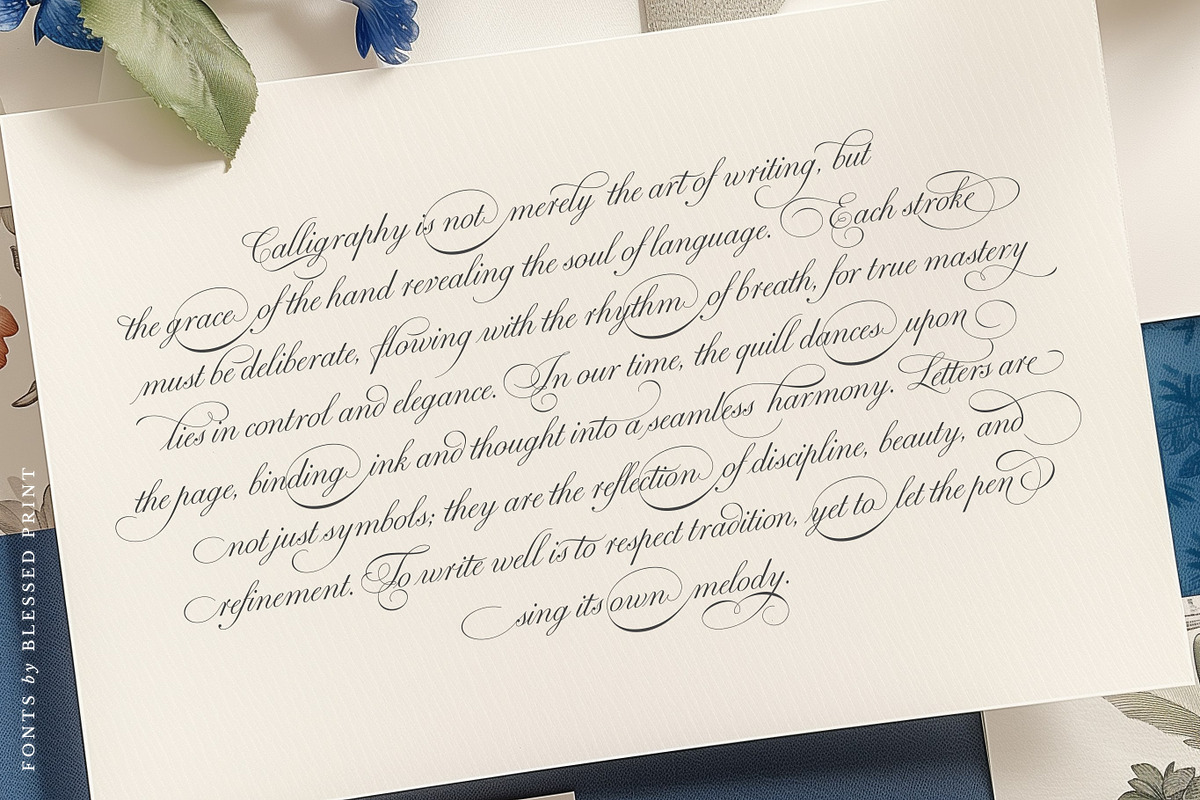 Calligraphy is not merely the art of writing, but
the grace of the hand revealing the soul of language. Each stroke
must be deliberate, flowing with the rhythm of breath, for true mastery
lies in control and elegance. In our time, the quill dances upon
the page, binding ink and thought into a seamless harmony. Letters are
not just symbols; they are the reflection of discipline, beauty, and
refinement. To write well is to respect tradition, yet to let the pen
sing its own melody.
FONTS by BLESSED PRINT